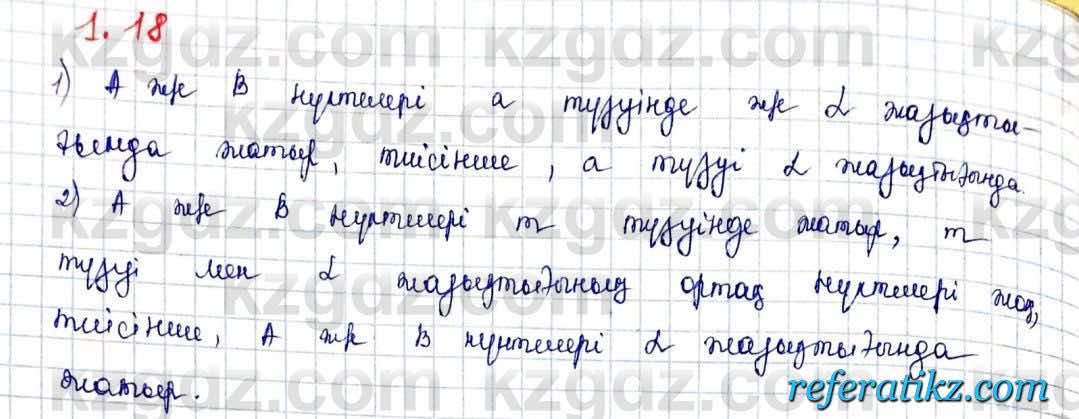 1.18
1) А ж/е В нүктелері а түзуінде ж/е α жазықты-
ғында жатыр, тиісінше, а түзуі α жазықтығында.
2) А ж/е В нүктелері m түзуінде жатыр, m
түзуі мен α жазықтығының ортақ нүктелері жоқ,
тиісінше, А ж/е В нүктелері α жазықтығында
жатыр.
referatikz.com